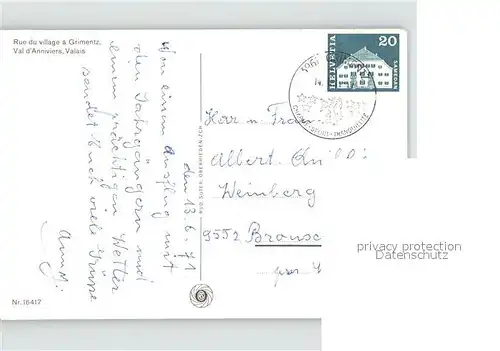 Rue du village à Grimentz,
Val d'Anniviers, Valais
den 13.6.71
Von einem Ausflug mit
den Jahrgängern und
einem prächtigen Wetter
sendet Euch viele Grüsse
HELVETIA
20
SAMEDAN
14.
Herr u Frau
Albert
Weinberg
9552
RUD. SUTER, OBERRIEDEN-ZCH
Nr. 16412
privacy protection
Datenschutz